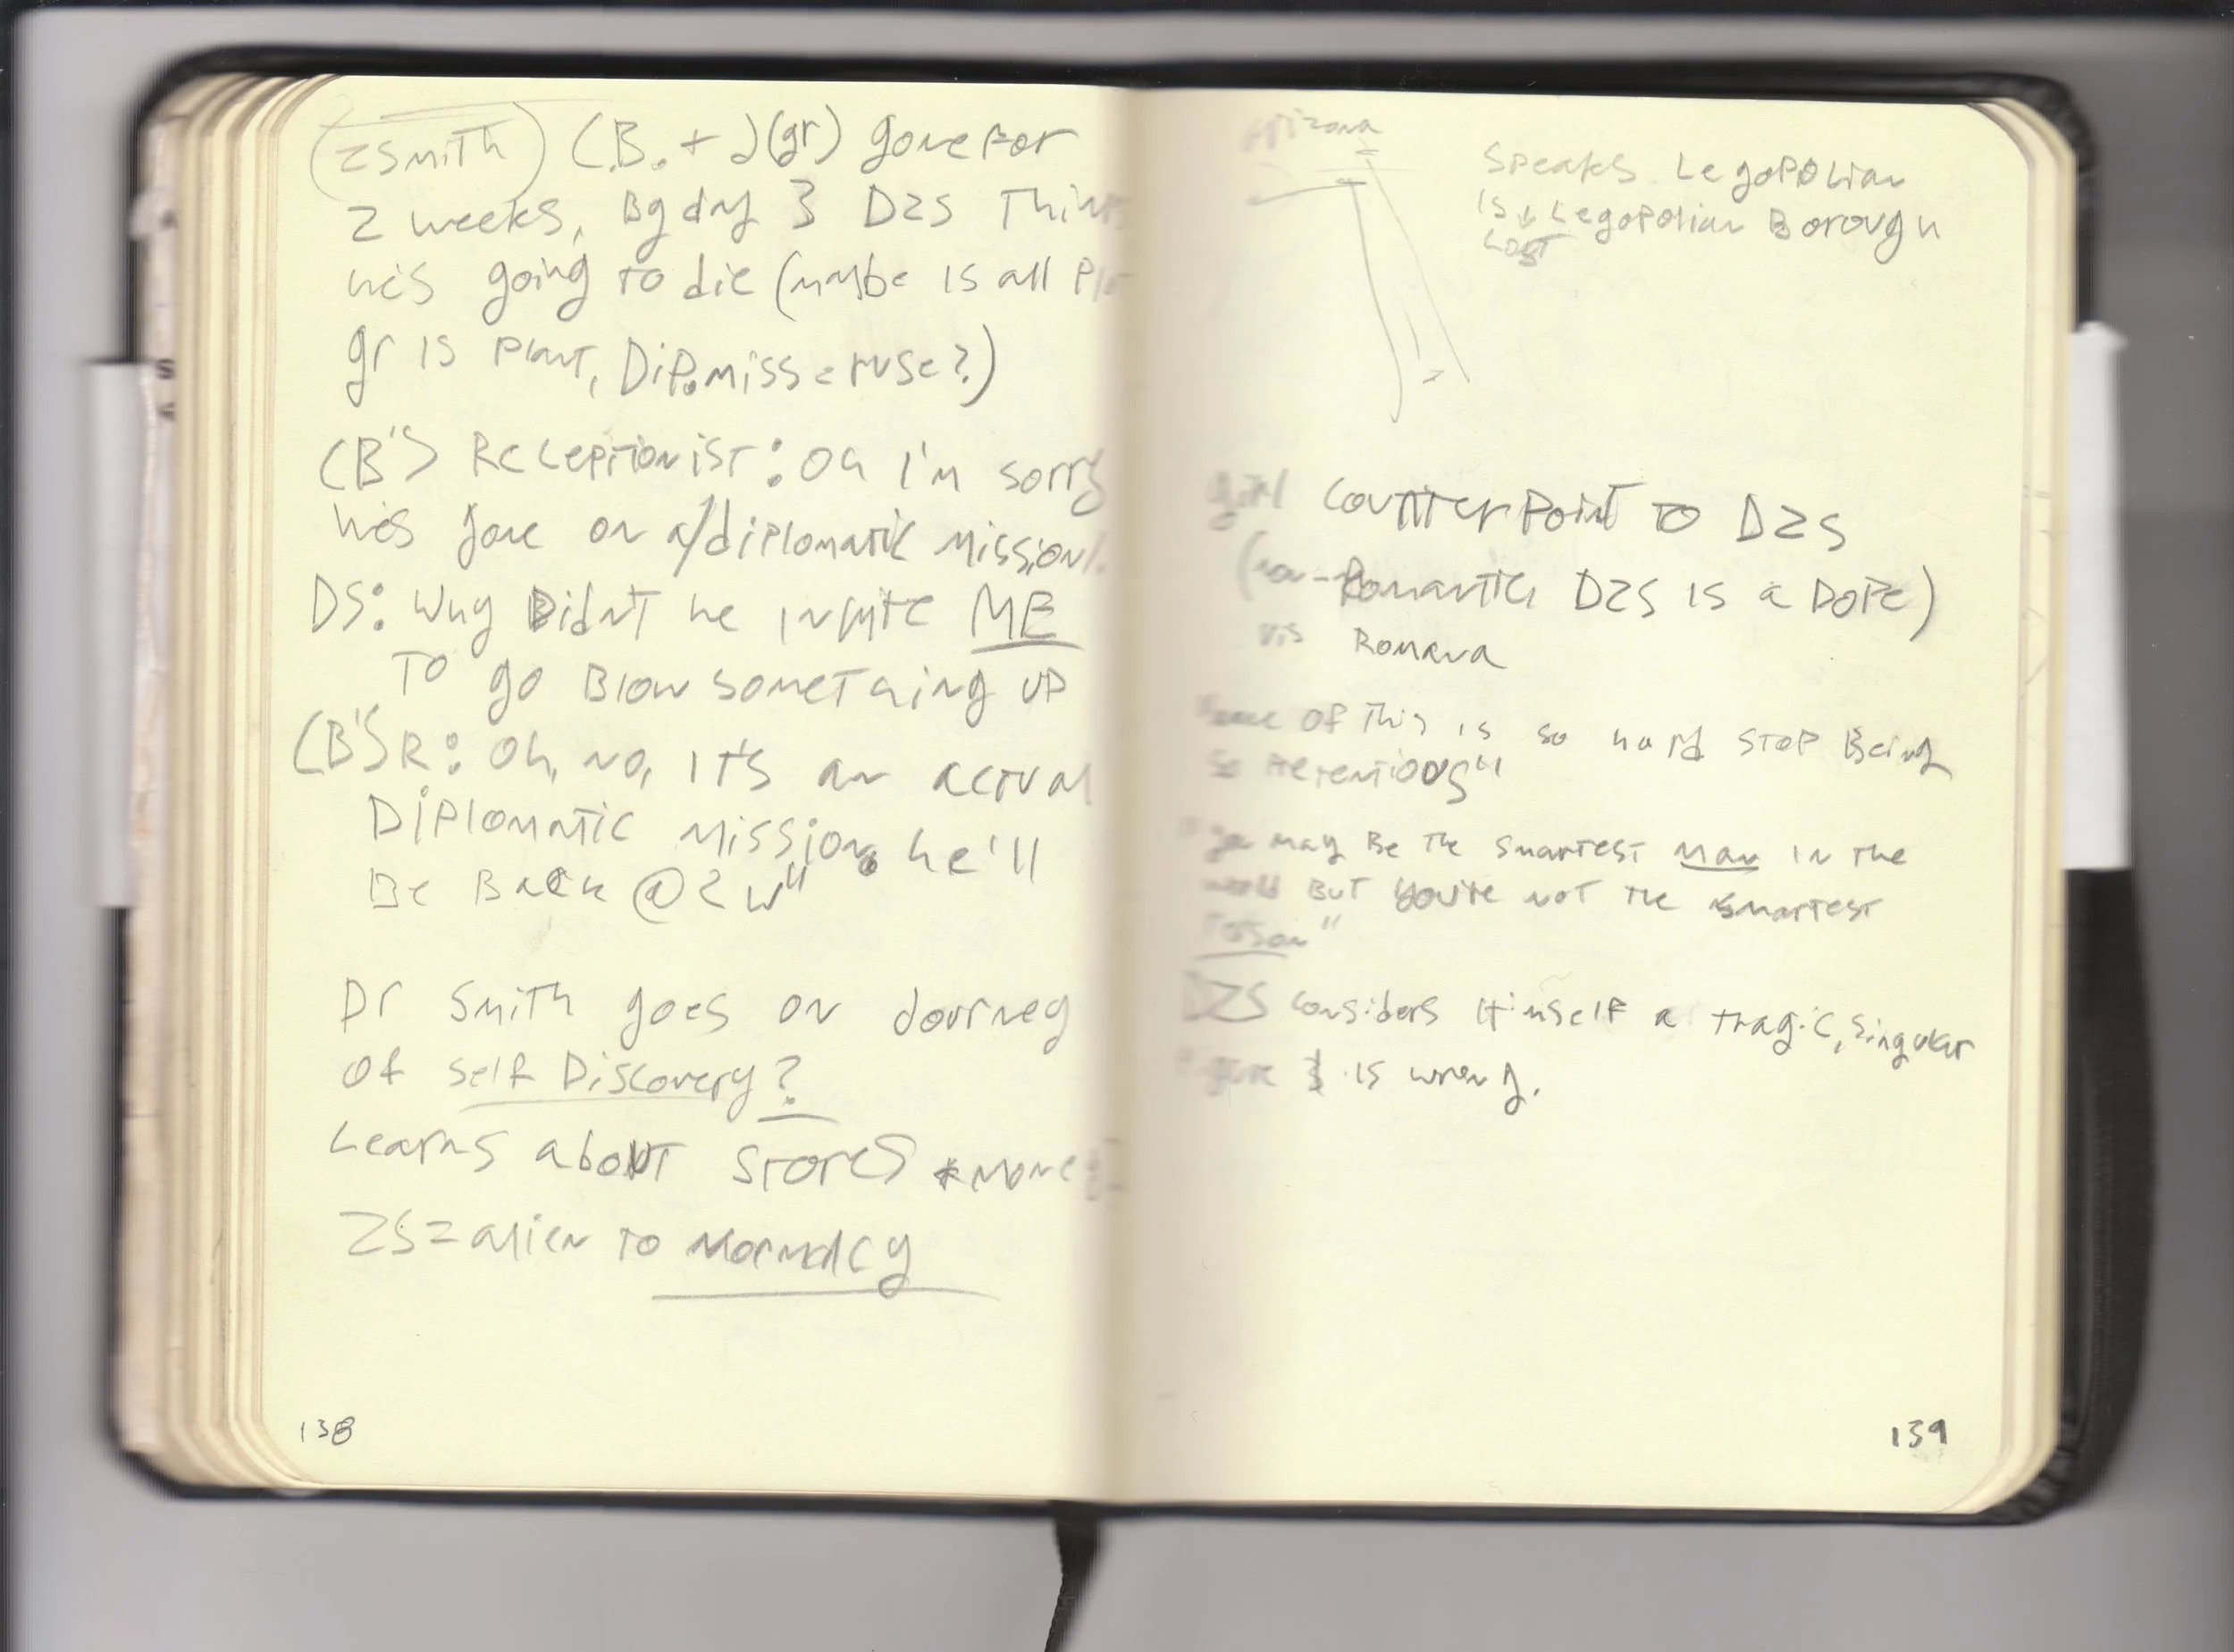 ZSMITH (B. + J(gr) gone for
2 weeks, By day 3 DZS Thinks
he's going to die (maybe is all
gr is plant, Dip. miss = ruse?)
(B'S RECEPTIONIST: Oh I'm sorry
he's gone on a/diplomatic mission/.
DS: Why Didn't he invite ME
TO go Blow something up
(B'S R: Oh, no, it's an actual
Diplomatic mission. he'll
Be Back @ 2 w"
Dr Smith goes on Journey
of self Discovery?
Learns about stores * money
ZS = alien to Normalcy
138
Arizona
Speaks Legopolian
is Legopolian Borough
Lost
girl Counterpoint to DZS
(non-Romantic, DZS is a Dope)
vis Romana
"none of this is so hard stop Being
so pretentious"
"you may Be the smartest man in the
world But you're not the smartest
Person"
DZS considers Himself a tragic, singular
figure & is wrong.
139